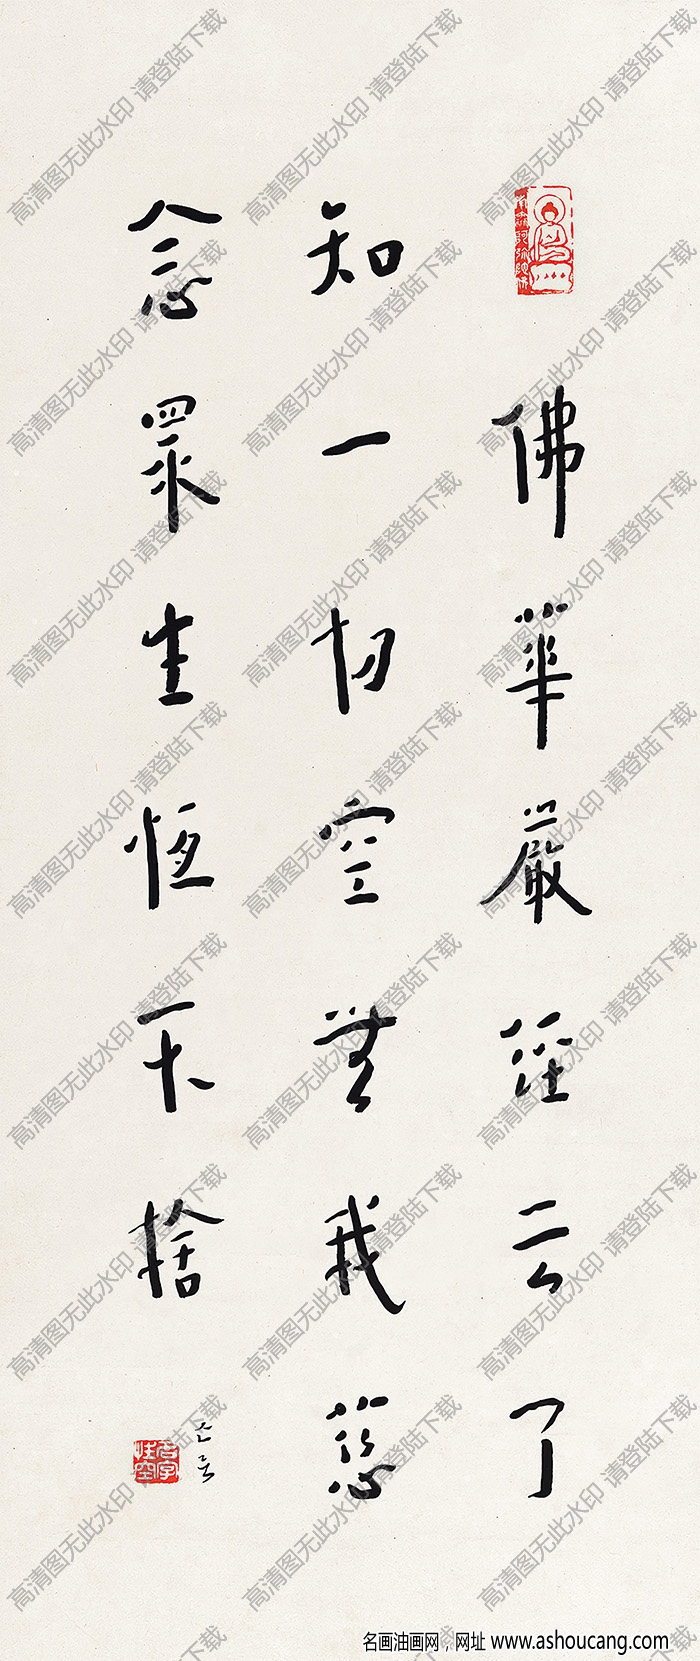 佛華嚴經云了
知一切空無我慈
念眾生恆不捨
亡言
名画油画网，网址 www.ashoucang.com
高清图无此水印 请登陆下载